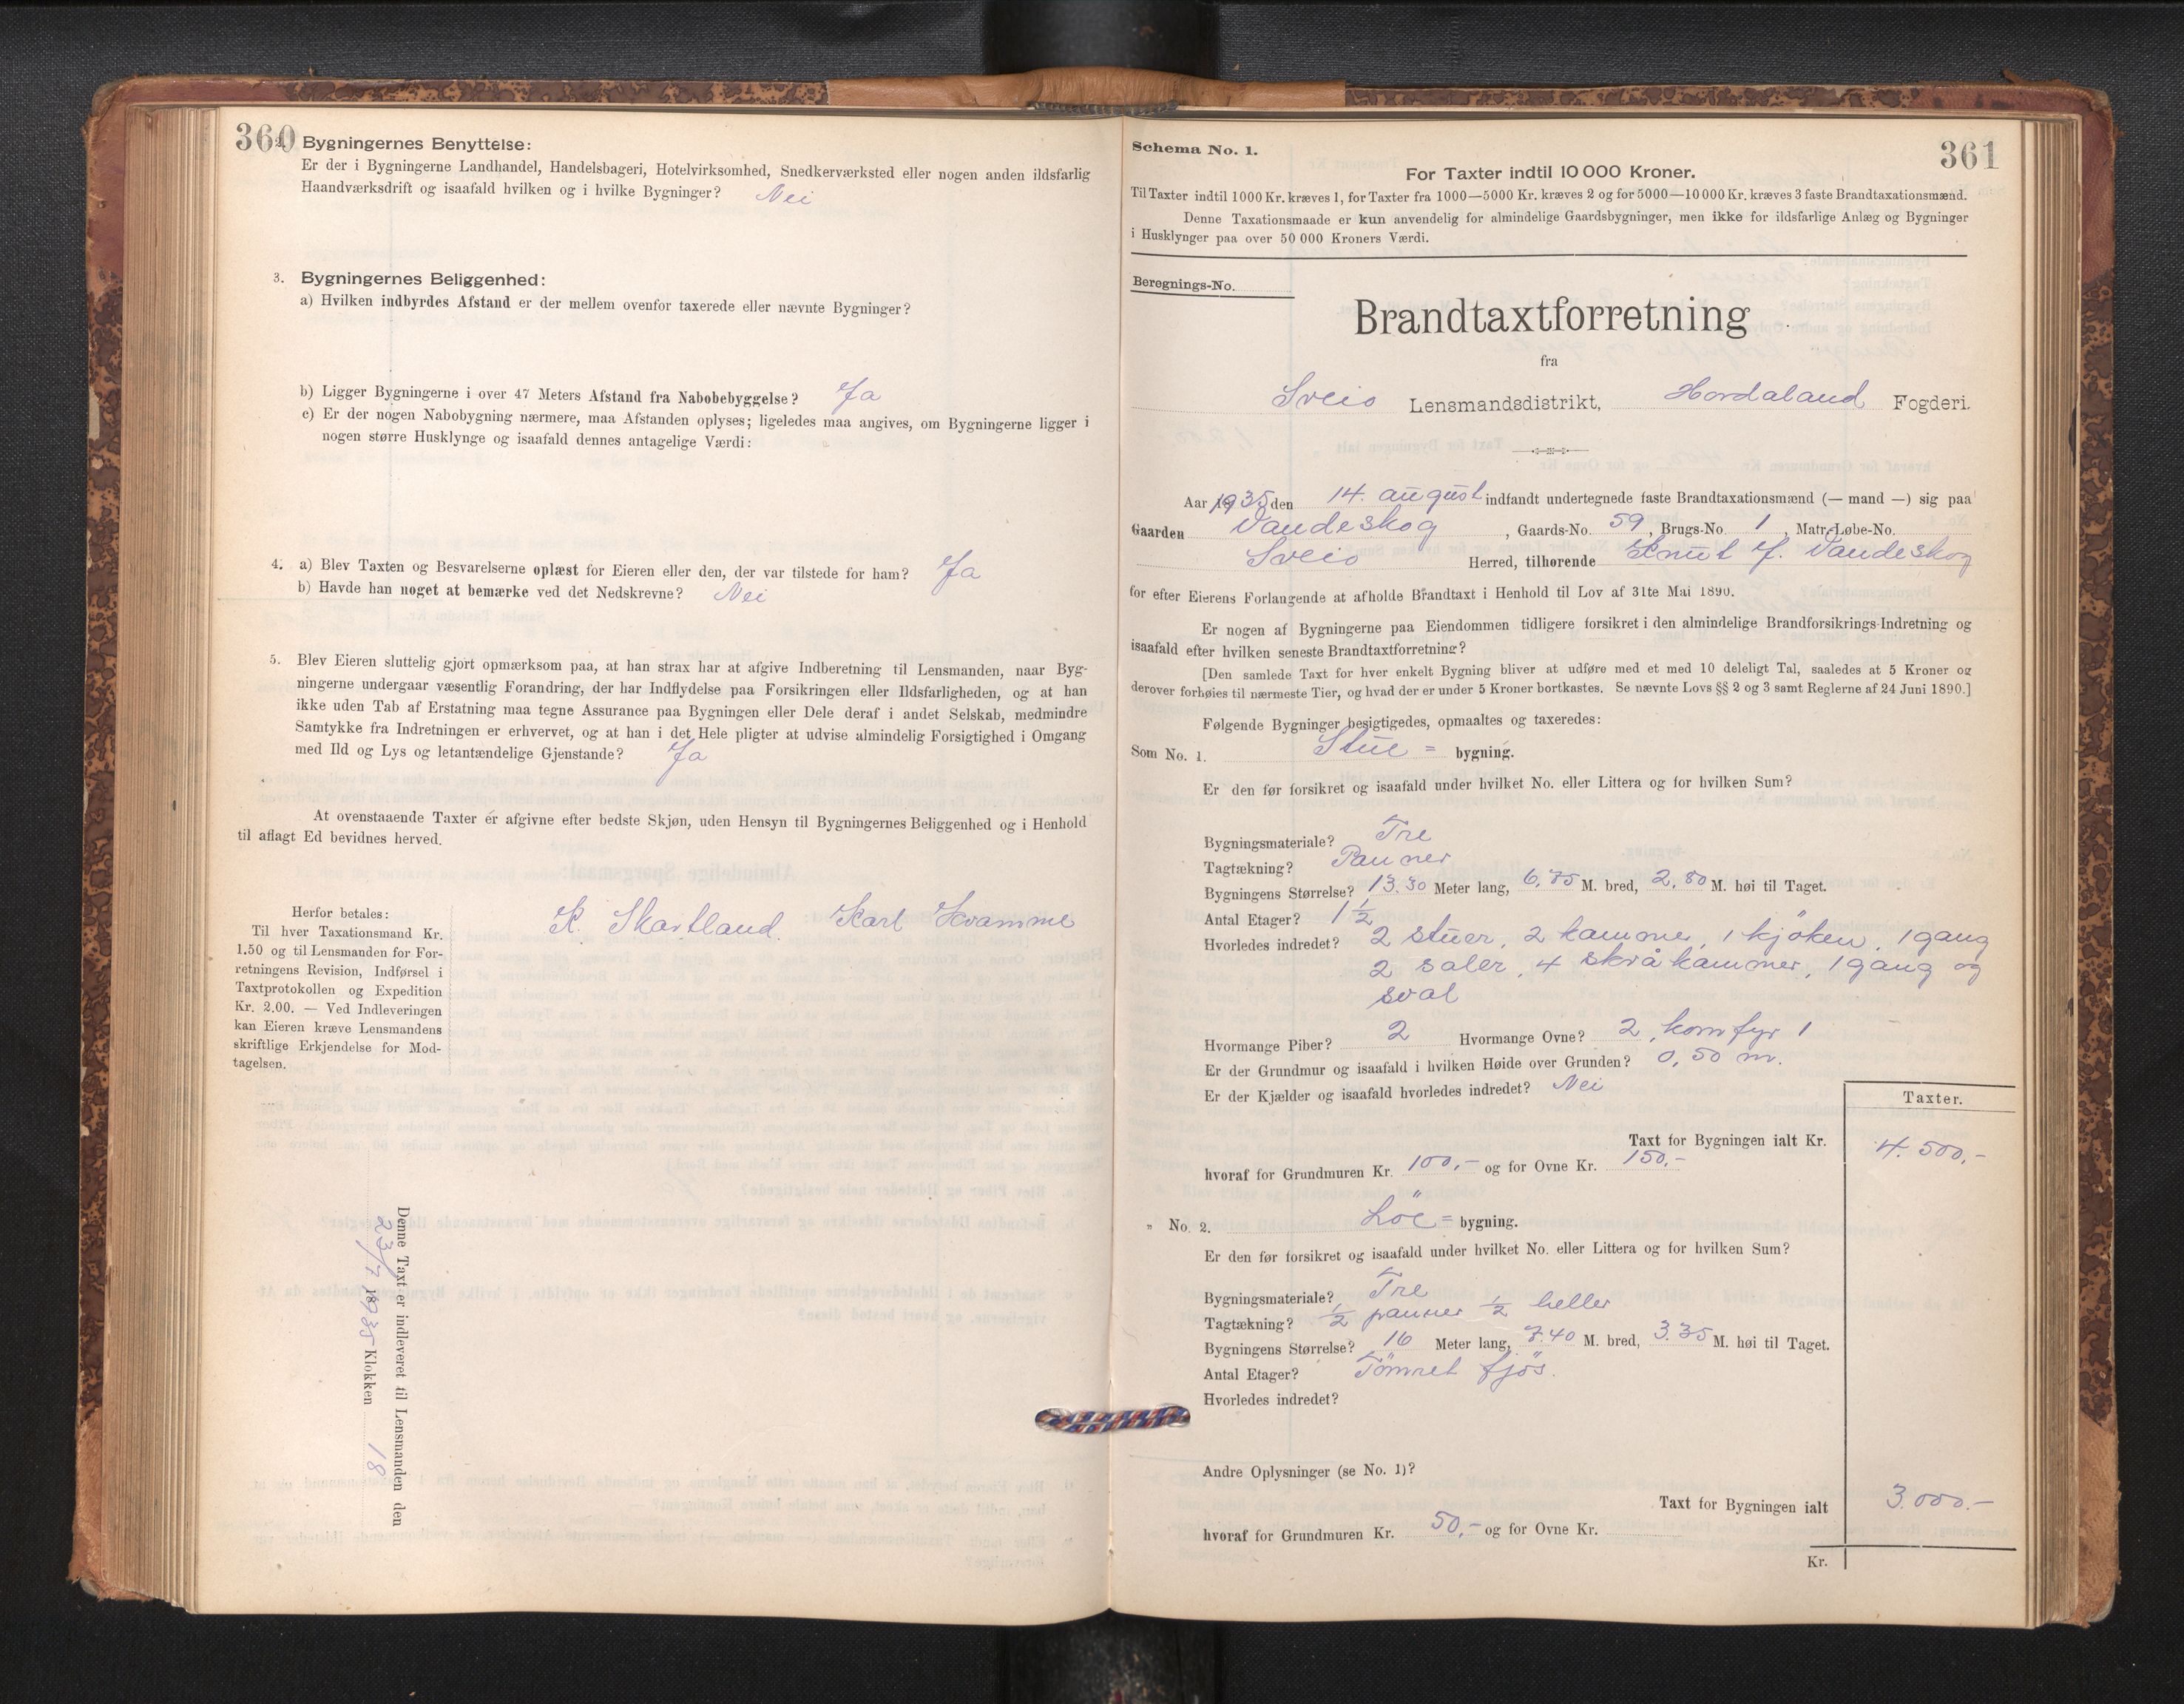 360
Bygningernes Benyttelse:
Er der i Bygningerne Landhandel, Handelsbageri, Hotelvirksomhed, Snedkerværksted eller nogen anden ildsfarlig
Haandværksdrift og isaafald hvilken og i hvilke Bygninger? Nei
3. Bygningernes Beliggenhed:
a) Hvilken indbyrdes Afstand er der mellem ovenfor taxerede eller nævnte Bygninger?
b) Ligger Bygningerne i over 47 Meters Afstand fra Nabobebyggelse? Ja
c) Er der nogen Nabobygning nærmere, maa Afstanden oplyses; ligeledes maa angives, om Bygningerne ligger i
nogen større Husklynge og isaafald dennes antagelige Værdi:
4. a) Blev Taxten og Besvarelserne oplæst for Eieren eller den, der var tilstede for ham? Ja
b) Havde han noget at bemærke ved det Nedskrevne? Nei
5. Blev Eieren sluttelig gjort opmærksom paa, at han strax har at afgive Indberetning til Lensmanden, naar Byg-
ningerne undergaar væsentlig Forandring, der har Indflydelse paa Forsikringen eller Ildsfarligheden, og at han
ikke uden Tab af Erstatning maa tegne Assurance paa Bygningen eller Dele deraf i andet Selskab, medmindre
Samtykke fra Indretningen er erhvervet, og at han i det Hele pligter at udvise almindelig Forsigtighed i Omgang
med Ild og Lys og letantændelige Gjenstande? Ja
At ovenstaaende Taxter er afgivne efter bedste Skjøn, uden Hensyn til Bygningernes Beliggenhed og i Henhold
til aflagt Ed bevidnes herved.
Herfor betales:
Til hver Taxationsmand Kr.
1.50 og til Lensmanden for For-
retningens Revision, Indførsel i
Taxtprotokollen og Expedition
Kr. 2.00. — Ved Indleveringen
kan Eieren kræve Lensmandens
skriftlige Erkjendelse for Mod-
tagelsen.
K. Skartland. Karl Kvamme
Denne Taxt er indleveret til Lensmanden den
23/7 1935 Klokken 18
361
Schema No. 1.
For Taxter indtil 10 000 Kroner.
Til Taxter indtil 1000 Kr. kræves 1, for Taxter fra 1000—5000 Kr. kræves 2 og for 5000—10 000 Kr. kræves 3 faste Brandtaxationsmænd.
Denne Taxationsmaade er kun anvendelig for almindelige Gaardsbygninger, men ikke for ildsfarlige Anlæg og Bygninger
i Husklynger paa over 50 000 Kroners Værdi.
Beregnings-No.
Brandtaxtforretning
fra
Sveio Lensmandsdistrikt, Hordaland Fogderi.
Aar 1935 den 14. august indfandt undertegnede faste Brandtaxationsmænd (— mand —) sig paa
Gaarden Vandeskog, Gaards-No. 59, Brugs-No. 1, Matr.-Løbe-No.
Sveio Herred, tilhørende Knut J. Vandeskog
for efter Eierens Forlangende at afholde Brandtaxt i Henhold til Lov af 31te Mai 1890.
Er nogen af Bygningerne paa Eiendommen tidligere forsikret i den almindelige Brandforsikrings-Indretning og
isaafald efter hvilken seneste Brandtaxtforretning?
[Den samlede Taxt for hver enkelt Bygning bliver at udføre med et med 10 deleligt Tal, saaledes at 5 Kroner og
derover forhøies til nærmeste Tier, og hvad der er under 5 Kroner bortkastes. Se nævnte Lovs §§ 2 og 3 samt Reglerne af 24 Juni 1890.]
Følgende Bygninger besigtigedes, opmaaltes og taxeredes:
Som No. 1. Stue = bygning.
Er den før forsikret og isaafald under hvilket No. eller Littera og for hvilken Sum?
Bygningsmateriale? Tre
Tagtækning? Panner
Bygningens Størrelse? 13.30 Meter lang, 6,75 M. bred, 2,80 M. høi til Taget.
Antal Etager? 1 1/2
Hvorledes indredet? 2 stuer, 2 kammer, 1 kjøken, 1 gang
2 saler, 4 skråkammer, 1 gang og
sval
Hvormange Piber? 2 Hvormange Ovne? 2, komfyr 1
Er der Grundmur og isaafald i hvilken Høide over Grunden? 0,50 m.
Er der Kjælder og isaafald hvorledes indredet? Nei
Taxter.
Taxt for Bygningen ialt Kr. 4.500,-
hvoraf for Grundmuren Kr. 100,- og for Ovne Kr. 150,-
" No. 2. Löe = bygning.
Er den før forsikret og isaafald under hvilket No. eller Littera og for hvilken Sum?
Bygningsmateriale? Tre
Tagtækning? 1/2 panner 1/2 heller
Bygningens Størrelse? 16 Meter lang, 7.40 M. bred, 3.35 M. høi til Taget.
Antal Etager? Tömret fjös.
Hvorledes indredet?
Andre Oplysninger (se No. 1)?
Taxt for Bygningen ialt 3.000.-
hvoraf for Grundmuren Kr. 50,- og for Ovne Kr.
Kr.